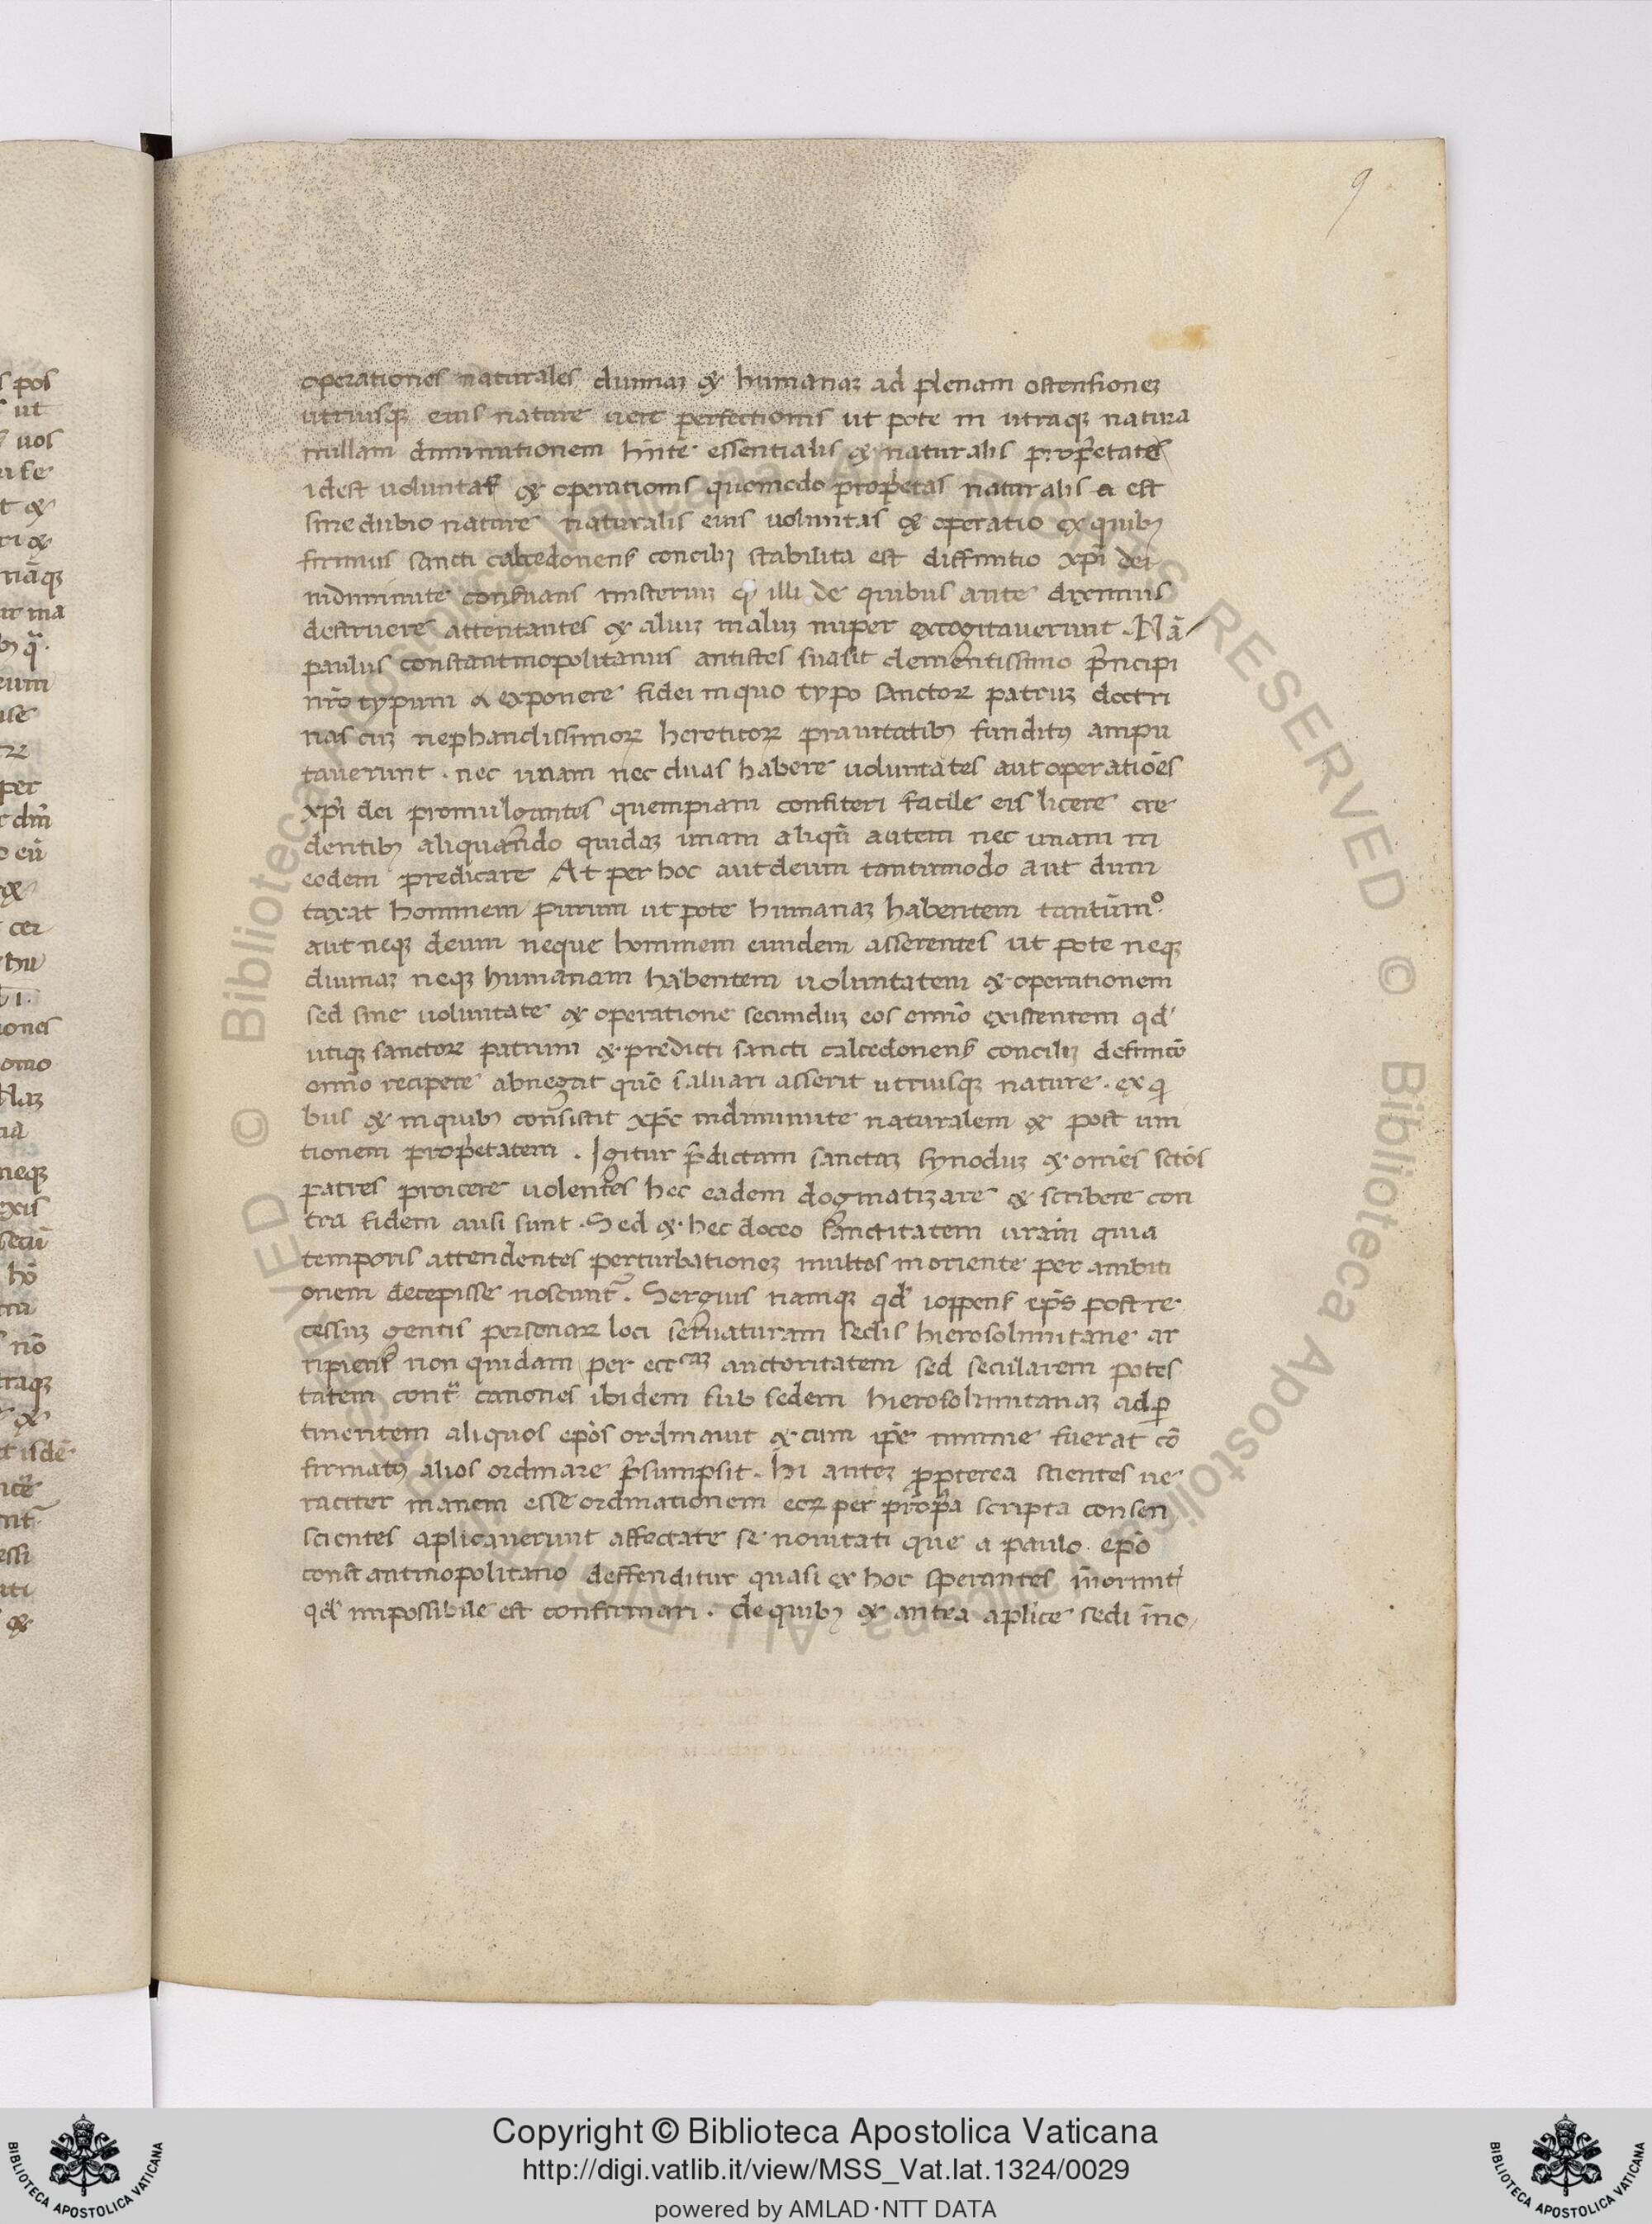 9
operationes naturales diuinaꝫ & humanaꝫ ad plenam ostensioneꝫ
utriusqꝫ eius nature uere perfectionis ut pote in utraqꝫ natura
nullam diminutionem hñte essentialis & naturalis propietates
idest uoluntaꝭ & operationis quomodo propietas naturalis a est
sine dubio nature naturalis eius uoluntas & operatio ex quibꝫ
firmius sancti calcedonenꝭ conciliꝫ stabilita est diffinitio xpi dei
indiminute conꝭuans misteriuꝫ qđ illi de quibus ante diximus
destruere attentantes & aliuꝫ maluꝫ nuper excogitauerunt . Nā
paulus constantinopolitanus antistes suasit clementissimo pͥncipi
nr̄o typum a exponere fidei in quo typo sanctoꝝ patruꝫ doctri
nas cuꝫ nephandissimoꝝ hereticoꝝ prauitatibꝫ funditꝰ ampu
tauerunt . nec unam nec duas habere uoluntates aut operatiōes
xp̄i dei promulgantes quempiam confiteri facile eis licere cre
dentibꝫ aliquando quidaꝫ unam aliqn̄ autem nec unam in
eodem predicare At per hoc aut deum tantummodo aut dum
taxat hominem purum ut pote humanaꝫ habentem tantūmᵒ.
aut neqꝫ deum neque hominem eundem asserentes ut pote neqꝫ
diuinaꝫ neqꝫ humanam habentem uoluntatem & operationem
sed sine uoluntate & operatione secunduꝫ eos omīo existentem qđ
utiqꝫ sanctoꝝ patrum & predicti sancti calcedonenꝭ conciliꝫ definitō
omīo recipere abnegat quō saluari asserit utriusqꝫ nature . ex qͥ
bus & in quibꝫ consistit xp̄c indiminute naturalem & post uni
tionem propietatem . Igitur p̄dictam sanctaꝫ synoduꝫ & omēs sctōs
patres proicere uolentes hec eadem dogmatizare & scribere con
tra fidem ausi sunt . Sed & hec doceo sanctitatem ur̄am quia
temporis attendentes perturbationeꝫ multos in oriente per ambiti
onem decepisse noscunt̉ . Sergius namqꝫ qđ ioppenꝭ ep̄s post re
cessuꝫ gentis personaꝝ loci seruaturam sedis hierosolimitane ar
ripienꝭ non quidam per ecc̄caꝫ auctoritatem sed secularem potes
tatem contͣ canones ibidem sub sedem hierosolimitanaꝫ adꝑ
tinentem aliquos ep̄os ordinauit & cum ip̄e minime fuerat cō
firmatꝰ alios ordinare p̄sumpsit . hi auteꝫ ꝓpterea scientes ue
raciter inanem esse ordinationem eoꝝ per propͥa scripta consen
scientes aplicauerunt affectate se nouitati que a paulo ep̄o
constantinopolitano deffenditur quasi ex hoc sperantes
qđ impossibile est confirmari . de quibꝫ & antea aplice sedi īno
Copyright © Biblioteca Apostolica Vaticana
http://digi.vatlib.it/view/MSS_Vat.lat.1324/0029
powered by AMLAD·NTT DATA